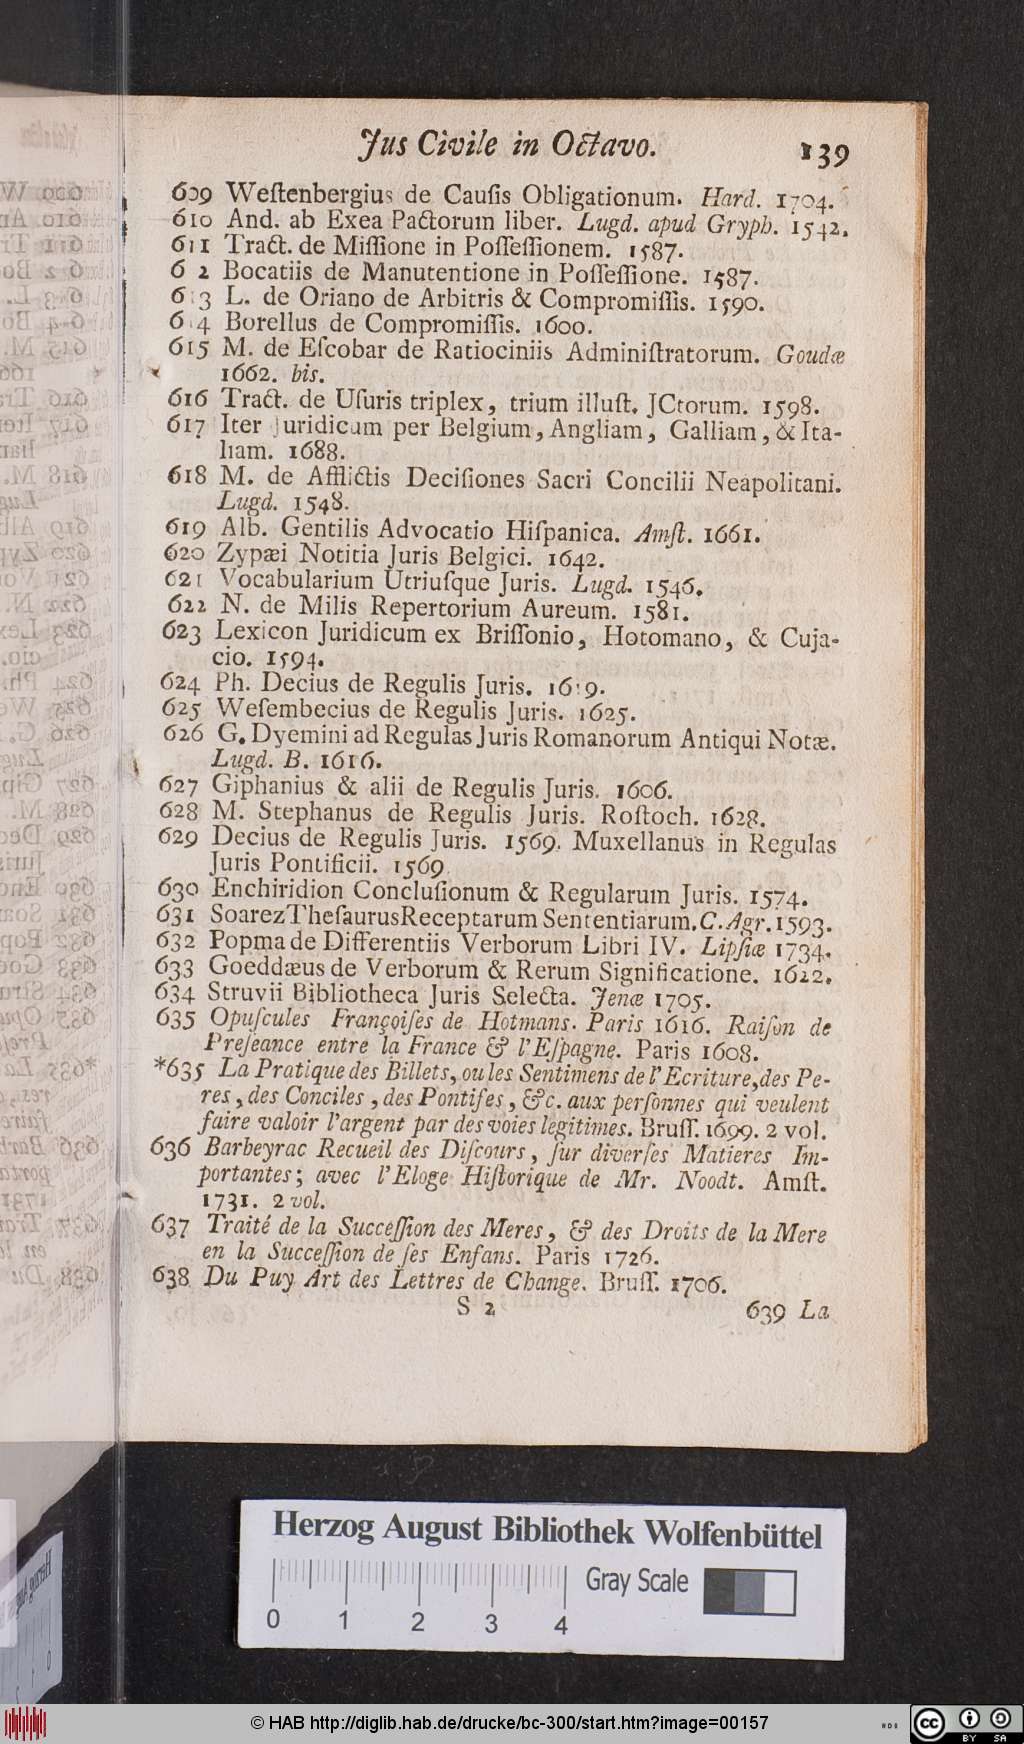 Jus Civile in Octavo. 139
609 Weſtenbergius de Cauſis Obligationum. Hard. 1704.
610 And. ab Exea Pactorum liber. Lugd. apud Gryph. 1542.
611 Tract. de Miſſione in Poſſeſſionem. 1587.
6 2 Bocatiis de Manutentione in Poſſeſſione. 1587.
613 L. de Oriano de Arbitris & Compromiſſis. 1590.
614 Borellus de Compromiſſis. 1600.
615 M. de Eſcobar de Ratiociniis Adminiſtratorum. Goudæ
1662. bis.
616 Tract. de Uſuris triplex, trium illuſt. JCtorum. 1598.
617 Iter Juridicum per Belgium, Angliam, Galliam, & Ita-
liam. 1688.
618 M. de Afflictis Deciſiones Sacri Concilii Neapolitani.
Lugd. 1548.
619 Alb. Gentilis Advocatio Hiſpanica. Amſt. 1661.
620 Zypæi Notitia Juris Belgici. 1642.
621 Vocabularium Utriuſque Juris. Lugd. 1546.
622 N. de Milis Repertorium Aureum. 1581.
623 Lexicon Juridicum ex Briſſonio, Hotomano, & Cuja-
cio. 1594.
624 Ph. Decius de Regulis Juris. 1619.
625 Weſembecius de Regulis Juris. 1625.
626 G. Dyemini ad Regulas Juris Romanorum Antiqui Notæ.
Lugd. B. 1616.
627 Giphanius & alii de Regulis Juris. 1606.
628 M. Stephanus de Regulis Juris. Roſtoch. 1628.
629 Decius de Regulis Juris. 1569. Muxellanus in Regulas
Juris Pontificii. 1569.
630 Enchiridion Concluſionum & Regularum Juris. 1574.
631 Soarez Theſaurus Receptarum Sententiarum. C. Agr. 1593.
632 Popma de Differentiis Verborum Libri IV. Lipſiæ 1734.
633 Goeddæus de Verborum & Rerum Significatione. 1622.
634 Struvii Bibliotheca Juris Selecta. Jenæ 1705.
635 Opuſcules Françoiſes de Hotmans. Paris 1616. Raiſon de
Preſeance entre la France & l'Eſpagne. Paris 1608.
*635 La Pratique des Billets, ou les Sentimens de l'Ecriture, des Pe-
res, des Conciles, des Pontifes, &c. aux perſonnes qui veulent
faire valoir l'argent par des voies legitimes. Bruſſ. 1699. 2 vol.
636 Barbeyrac Recueil des Diſcours, ſur diverſes Matieres Im-
portantes; avec l'Eloge Hiſtorique de Mr. Noodt. Amſt.
1731. 2 vol.
637 Traité de la Succeſſion des Meres, & des Droits de la Mere
en la Succeſſion de ſes Enfans. Paris 1726.
638 Du Puy Art des Lettres de Change. Bruſſ. 1706.
S 2 639 La
Herzog August Bibliothek Wolfenbüttel
Gray Scale
0 1 2 3 4
© HAB http://diglib.hab.de/drucke/bc-300/start.htm?image=00157
cc BY SA